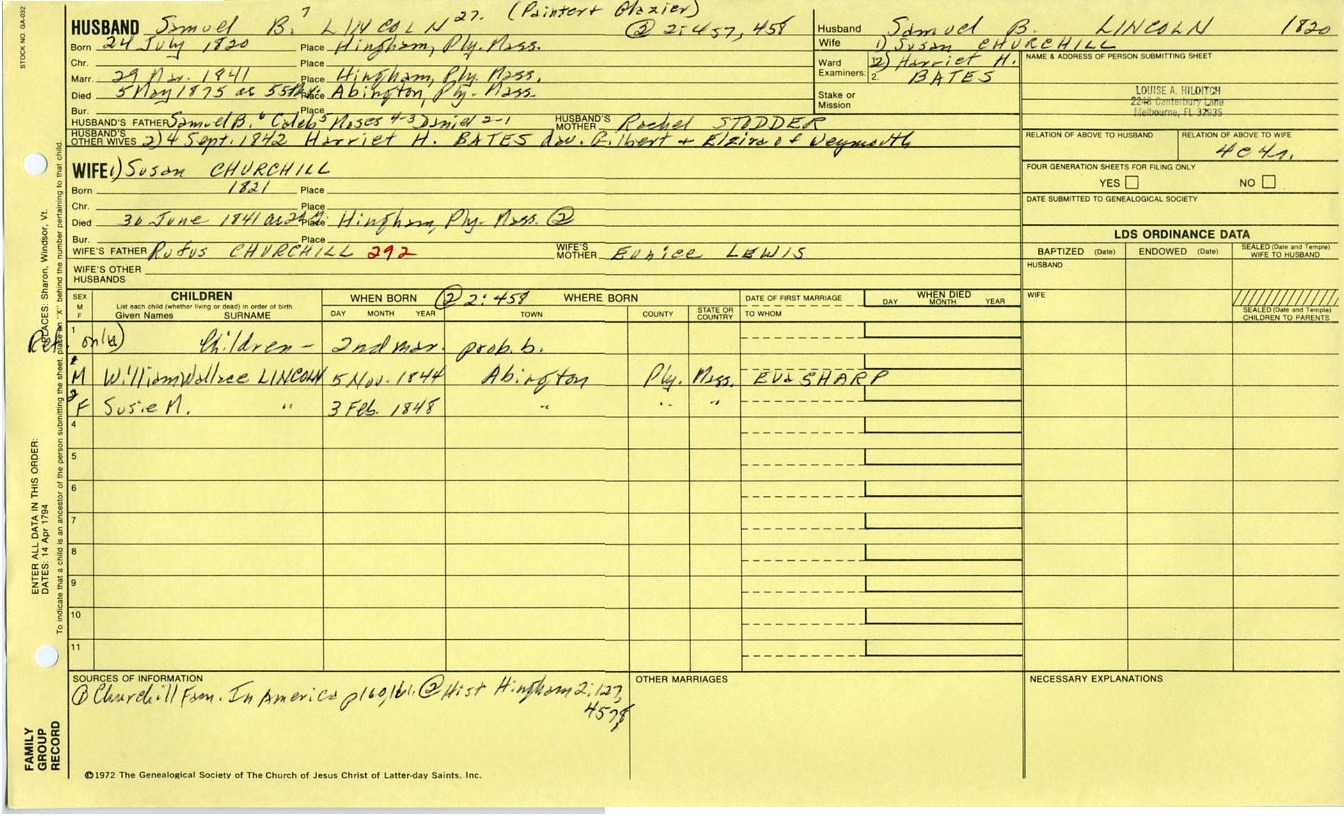 STOCK NO. GA-032
HUSBAND Samuel B. 7 LINCOLN 27. (Painter & Glazier)
② 2:457, 458
Born 24 July 1820 Place Hingham, Ply. Mass.
Chr. Place
Marr. 29 Mar. 1841 Place Hingham, Ply. Mass.
Died 5 May 1875 ae 55 Place Abington, Ply. Mass.
Bur. Place
HUSBAND'S FATHER Samuel B. 6 Caleb 5 Moses 4-3 Daniel 2-1 HUSBAND'S MOTHER Rachel STODDER
HUSBAND'S OTHER WIVES 2) 4 Sept. 1842 Harriet H. BATES dau. Gilbert + Elzira of Weymouth
WIFE 1) Susan CHURCHILL
Born 1821 Place
Chr. Place
Died 30 June 1841 ae Place Hingham, Ply. Mass. ②
Bur. Place
WIFE'S FATHER Rufus CHURCHILL 292 WIFE'S MOTHER Eunice LEWIS
WIFE'S OTHER HUSBANDS
Husband Samuel B. LINCOLN 1820
Wife 1) Susan CHURCHILL
Ward Examiners: 1. 2) Harriet H.
2. BATES
Stake or Mission
NAME & ADDRESS OF PERSON SUBMITTING SHEET
LOUISE A. HILDITCH
2248 Canterbury Lane
Melbourne, FL 32935
RELATION OF ABOVE TO HUSBAND RELATION OF ABOVE TO WIFE
4c4r.
FOUR GENERATION SHEETS FOR FILING ONLY
YES NO
DATE SUBMITTED TO GENEALOGICAL SOCIETY
LDS ORDINANCE DATA
BAPTIZED (Date) ENDOWED (Date) SEALED (Date and Temple) WIFE TO HUSBAND
HUSBAND
WIFE
SEALED (Date and Temple) CHILDREN TO PARENTS
SEX M F CHILDREN WHEN BORN ② 2:458 WHERE BORN DATE OF FIRST MARRIAGE WHEN DIED
List each child (whether living or dead) in order of birth
Given Names SURNAME DAY MONTH YEAR TOWN COUNTY STATE OR COUNTRY TO WHOM DAY MONTH YEAR
1 only) Children - 2nd mar. prob. b.
M William Wallace LINCOLN 5 Nov. 1844 Abington Ply. Mass. Eva SHARP
F Susie M. " 3 Feb. 1848 " " "
4
5
6
7
8
9
10
11
SOURCES OF INFORMATION OTHER MARRIAGES NECESSARY EXPLANATIONS
① Churchill Fam. In America p160,161. ② Hist Hingham 2:127,
457,8
©1972 The Genealogical Society of The Church of Jesus Christ of Latter-day Saints, Inc.
FAMILY GROUP RECORD
ENTER ALL DATA IN THIS ORDER:
DATES: 14 Apr 1794
PLACES: Sharon, Windsor, Vt.
To indicate that a child is an ancestor of the person submitting the sheet, place an "X" behind the number pertaining to that child.